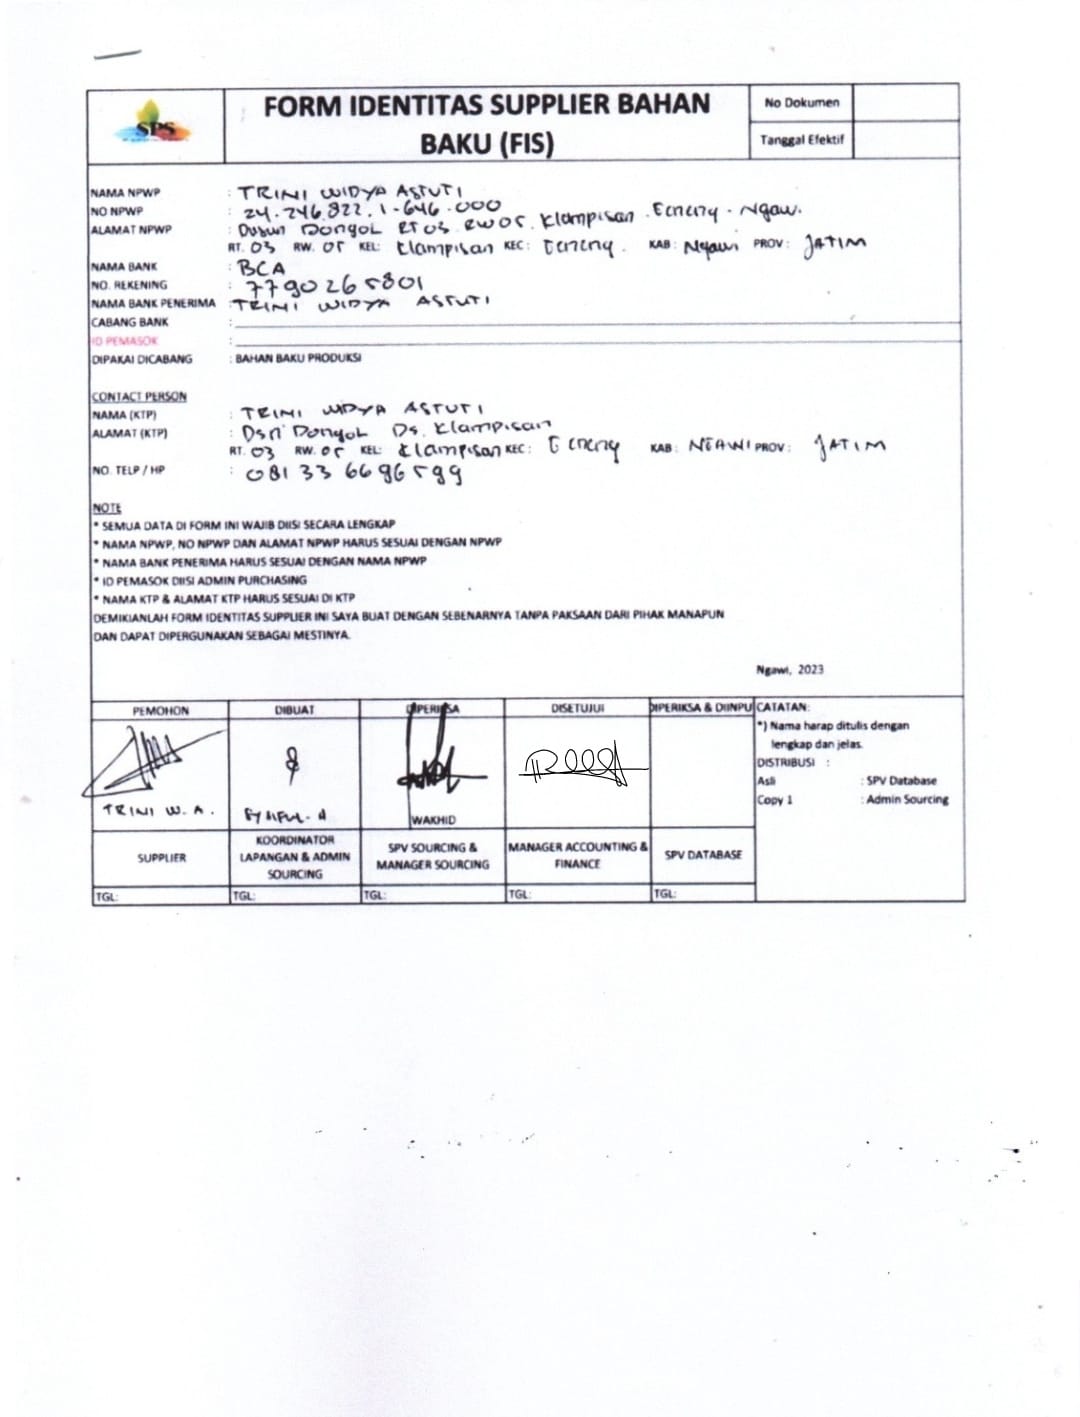 SPS
FORM IDENTITAS SUPPLIER BAHAN
BAKU (FIS)
No Dokumen
Tanggal Efektif
NAMA NPWP : TRINI WIDYA ASTUTI
NO NPWP : 24.246.822.1-646.000
ALAMAT NPWP : Dusun Dongol RT 03 RW 05. Klampisan. Geneng - Ngawi
RT. 03 RW. 05 KEL: Klampisan KEC: Geneng. KAB: Ngawi PROV: JATIM
NAMA BANK : BCA
NO. REKENING : 7790265801
NAMA BANK PENERIMA : TRINI WIDYA ASTUTI
CABANG BANK :
ID PEMASOK :
DIPAKAI DICABANG : BAHAN BAKU PRODUKSI
CONTACT PERSON
NAMA (KTP) : TRINI WIDYA ASTUTI
ALAMAT (KTP) : Dsn Dongol Ds. Klampisan
RT. 03 RW. 05 KEL: Klampisan KEC: Geneng KAB: NGAWI PROV: JATIM
NO. TELP / HP : 081 33 6696 599
NOTE
* SEMUA DATA DI FORM INI WAJIB DIISI SECARA LENGKAP
* NAMA NPWP, NO NPWP DAN ALAMAT NPWP HARUS SESUAI DENGAN NPWP
* NAMA BANK PENERIMA HARUS SESUAI DENGAN NAMA NPWP
* ID PEMASOK DIISI ADMIN PURCHASING
* NAMA KTP & ALAMAT KTP HARUS SESUAI DI KTP
DEMIKIANLAH FORM IDENTITAS SUPPLIER INI SAYA BUAT DENGAN SEBENARNYA TANPA PAKSAAN DARI PIHAK MANAPUN
DAN DAPAT DIPERGUNAKAN SEBAGAI MESTINYA.
Ngawi, 2023
PEMOHON DIBUAT DIPERIKSA DISETUJUI DIPERIKSA & DIINPU CATATAN:
*) Nama harap ditulis dengan
lengkap dan jelas.
DISTRIBUSI :
Asli : SPV Database
Copy 1 : Admin Sourcing
TRINI W. A.
WAKHID
SUPPLIER
KOORDINATOR
LAPANGAN & ADMIN
SOURCING
SPV SOURCING &
MANAGER SOURCING
MANAGER ACCOUNTING &
FINANCE
SPV DATABASE
TGL: TGL: TGL: TGL: TGL: